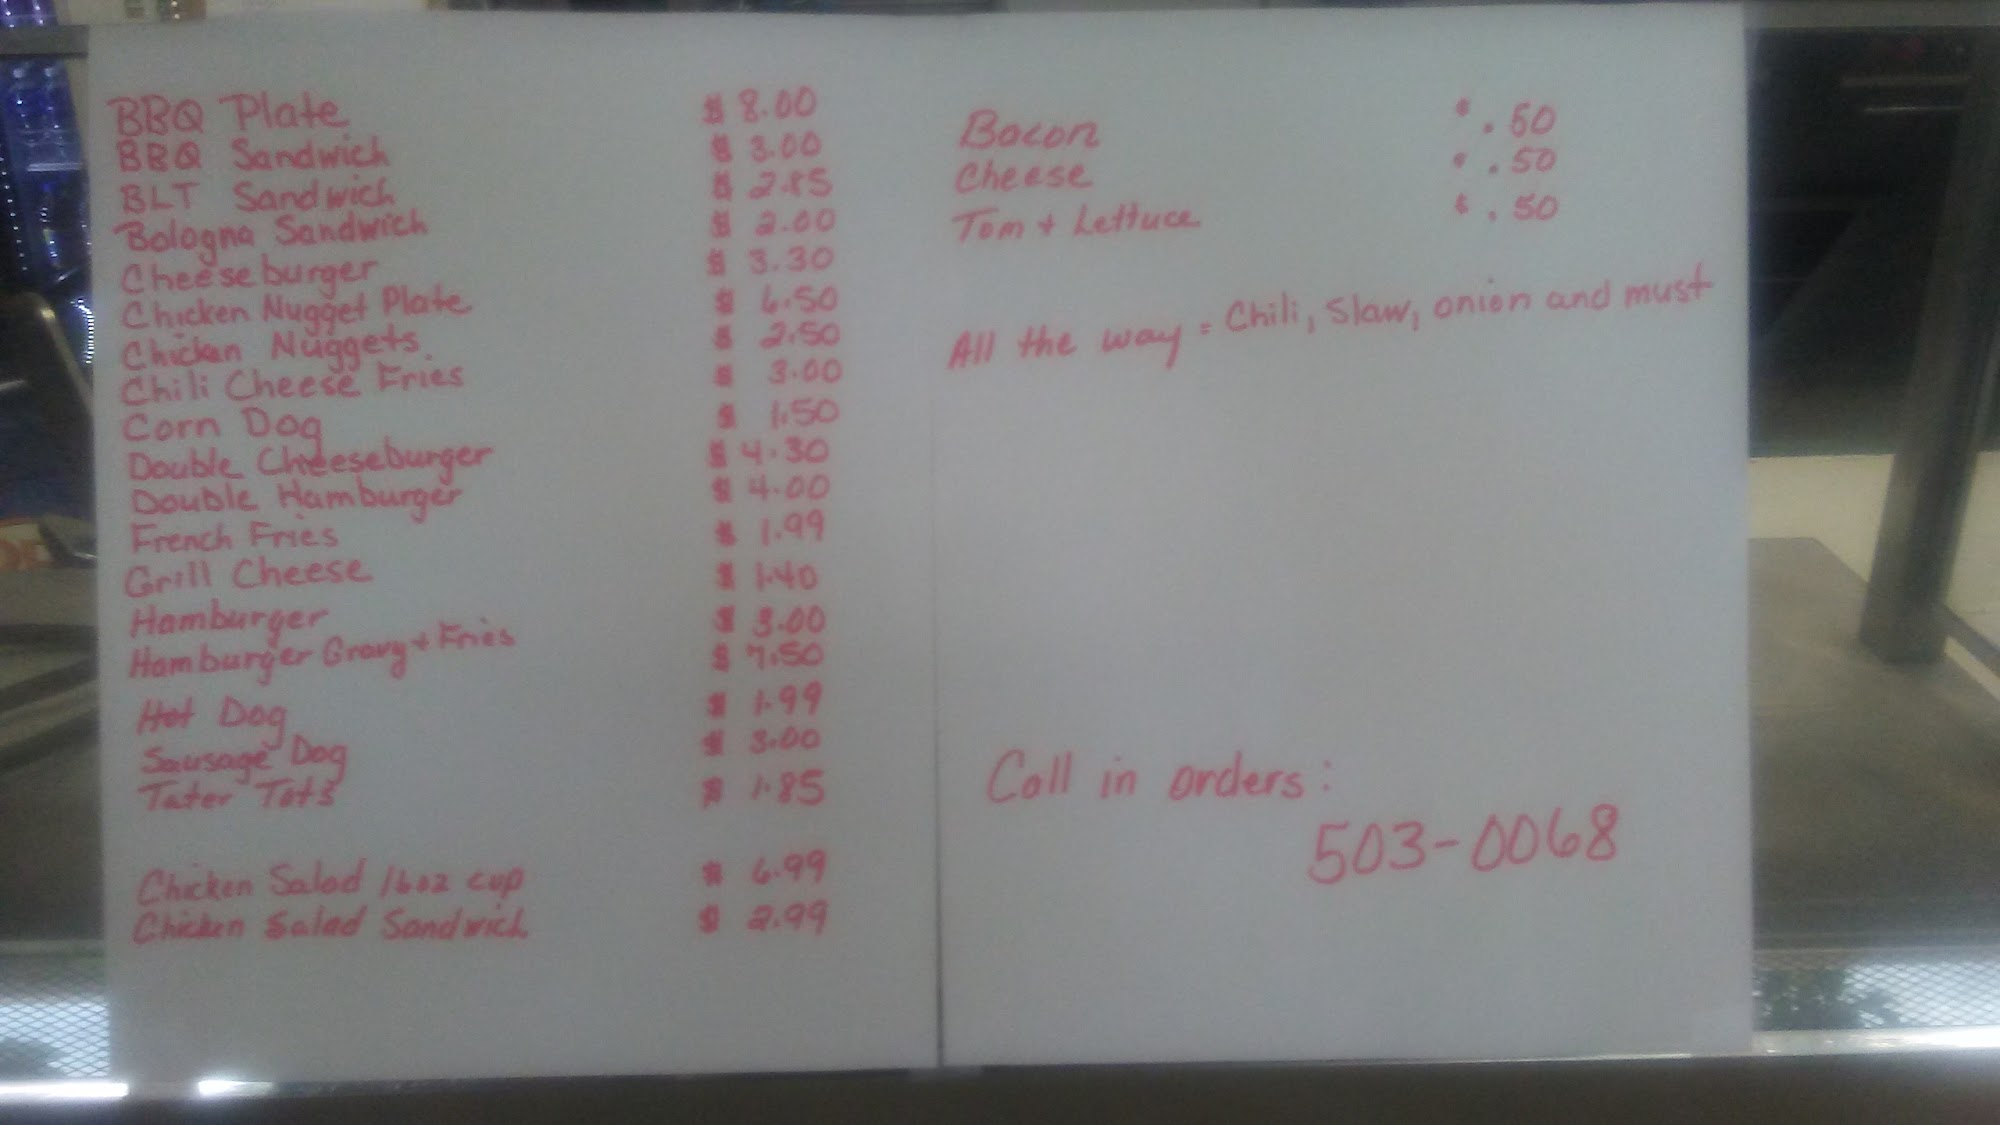 BBQ Plate $ 8.00
BBQ Sandwich $ 3.00
BLT Sandwich $ 2.85
Bologna Sandwich $ 2.00
Cheeseburger $ 3.30
Chicken Nugget Plate $ 6.50
Chicken Nuggets $ 2.50
Chili Cheese Fries $ 3.00
Corn Dog $ 1.50
Double Cheeseburger $ 4.30
Double Hamburger $ 4.00
French Fries $ 1.99
Grill Cheese $ 1.40
Hamburger $ 3.00
Hamburger Gravy + Fries $ 7.50
Hot Dog $ 1.99
Sausage Dog $ 3.00
Tater Tots $ 1.85
Chicken Salad 16oz cup $ 6.99
Chicken Salad Sandwich $ 2.99
Bacon $ .50
Cheese $ .50
Tom + Lettuce $ .50
All the way = Chili, Slaw, onion and must
Call in orders:
503-0068